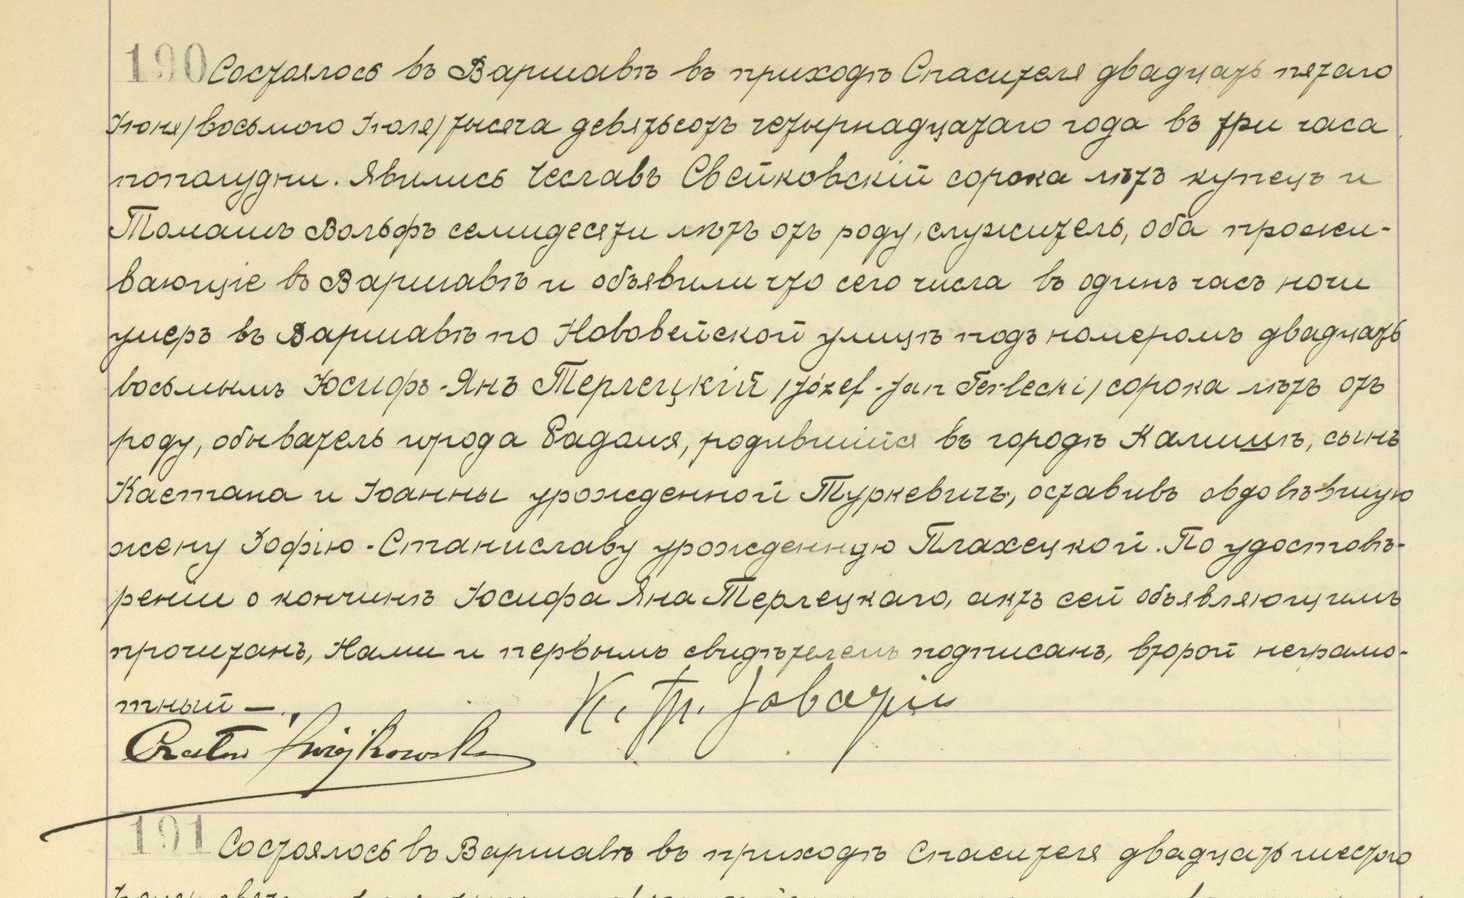 190 Состоялось въ Варшавѣ въ приходѣ Спасителя двадцать пятаго
Іюня/восьмого Іюля/тысяча девятьсотъ четырнадцатаго года въ три часа
пополудни. Явились Чеславъ Свейковскій сорока лѣтъ купецъ и
Томашъ Вольфъ семидесяти лѣтъ отъ роду, служитель, оба прожи-
вающіе въ Варшавѣ и объявили что сего числа въ одинъ часъ ночи
умеръ въ Варшавѣ по Нововейской улицѣ подъ номеромъ двадцать
восьмымъ Юсифъ-Янъ Терлецкій /Józef-Jan Terlecki/ сорока лѣтъ отъ
роду, обыватель города Радомя, родившійся въ городѣ Калишѣ, сынъ
Каетана и Іоанны урожденной Туркевичъ, оставивъ овдовѣвшую
жену Зофію-Станиславу урожденную Плахецкой. По удостовѣ-
реніи о кончинѣ Юсифа Яна Терлецкаго, актъ сей объявляющимъ
прочитанъ, Нами и первымъ свидѣтелемъ подписанъ, второй неграмо-
тный —.
К. Гр.
191 Состоялось въ Варшавѣ въ приходѣ Спасителя двадцать шестого